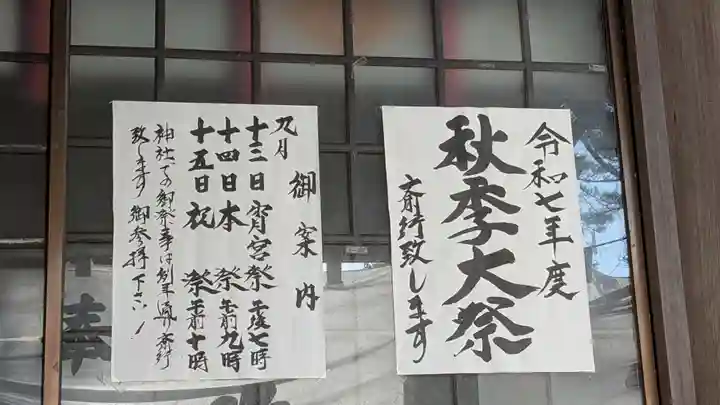 令和七年度
秋季大祭
斎行致します
御案内
九月
十三日 宵宮祭 午後七時
十四日 本祭 午前九時
十五日 祝祭 午前十時
神社での御祭事は例年通り斎行
致します 御参拝下さい！
奉